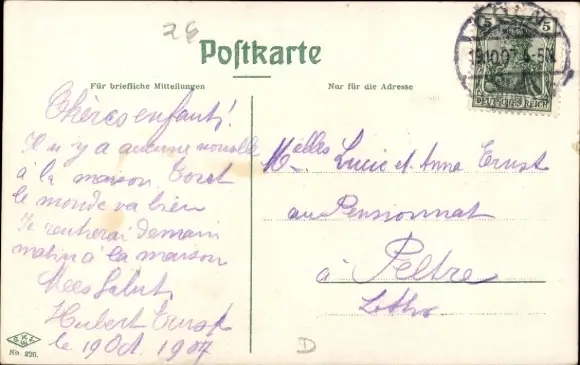 26
Postkarte
Für briefliche Mitteilungen
Nur für die Adresse
5 5
19.10.07. 4-5N
DEUTSCHES REICH
Chères enfants!
Il n'y a aucune nouvelle
à la maison. Tout
le monde va bien
Je rentrerai demain
matin à la maison
Mes Saluts
Hubert Ernst
le 19 Oct. 1907
Melles Lucie et Anne Ernst
au Pensionnat
à Peltre
Lothr.
No. 226.
D